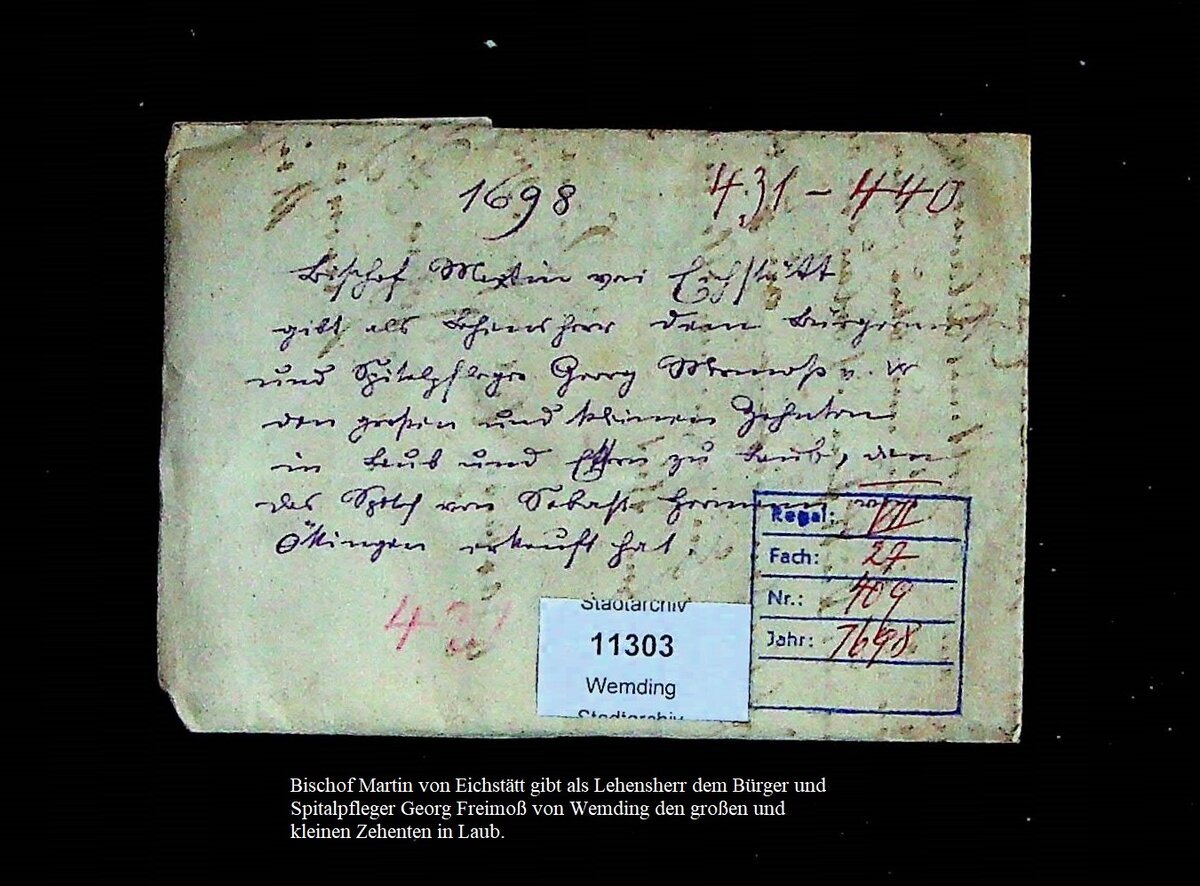 1698 431 – 440
Bischof Martin von Eichstätt
gibt als Lehensherr dem Bürgerm
und Spitalpfleger Georg
den großen und kleinen Zehnten
in Laub und zu Laub, den
das von Sebast.
Ökingen erkauft hat.
431
Stadtarchiv
11303
Wemding
Stadtarchiv
Regal: VII
Fach: 27
Nr.: 409
Jahr: 1698
Bischof Martin von Eichstätt gibt als Lehensherr dem Bürger und
Spitalpfleger Georg Freimoß von Wemding den großen und
kleinen Zehenten in Laub.